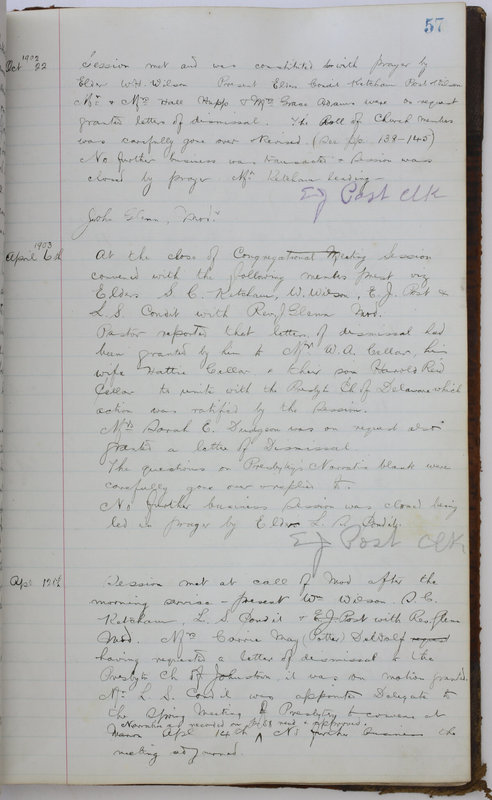 57
1902
Oct 22 Session met and was constituted with prayer by
Elder W. H. Wilson Present Elders Condit Ketcham Post & Wilson
Mr. & Mrs. Hall Hupp & Mrs Grace Adams were on request
granted letters of dismissal. The Roll of Church members
was carefully gone over & revised. (See pp. 139-145)
No further business was transacted & Session was
closed by prayer Mr. Ketcham leading—
E J Post Clk
John Glenn, Modr
1903
April 6th At the close of Congregational Meeting Session
convened with the following members present viz
Elders S. C. Ketcham, W. Wilson, E. J. Post &
L. S. Condit with Rev. J Glenn Mod.
Pastor reported that letters of dismissal had
been granted by him to Mr W. A. Cellar, his
wife Hattie Cellar & their son Harold Reid
Cellar to unite with the Presbyth Ch of Delaware which
action was ratified by the Session.
Mrs Sarah E. Dudgeon was on request also
granted a letter of Dismissal.
The questions on Presbyterys Narrative blank were
carefully gone over & replied to.
No further business Session was closed being
led in prayer by Elder L. S. Condit.
E J Post Clk
Apr 12th Session met at call of Mod after the
morning service - present Wm Wilson. S. C.
Ketcham, L. S. Condit & E. J. Post with Rev. Glenn
Mod. Mrs Carrie May (Potter) DeWolf
having requested a letter of dismissal to the
Presbyth Ch of Johnston, it was on motion granted.
Mr. L. S. Condit was appointed Delegate to
the Spring Meeting of Presbytery to convene at
Narrative as recorded on p. 68 read & approved.
Apl 14th ^ No further business the
meeting adjourned.